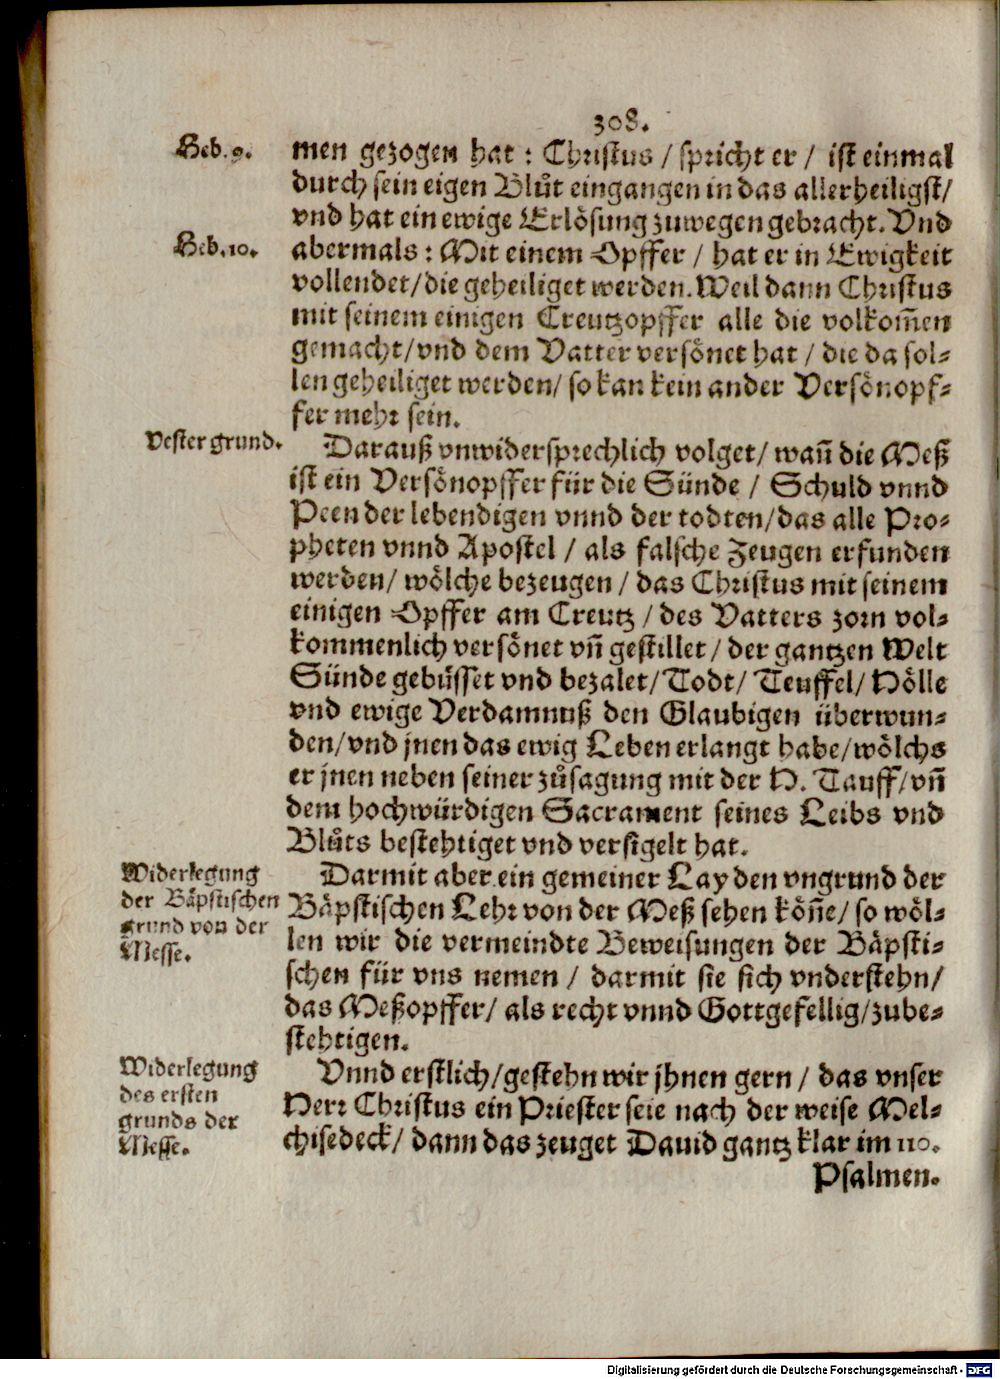 308.
Heb. 9.
men gezogen hat : Christus / spricht er / ist einmal
durch sein eigen Blůt eingangen in das allerheiligst/
vnd hat ein ewige Erlösung zuwegen gebracht. Vnd
Heb. 10.
abermals : Mit einem Opffer / hat er in Ewigkeit
vollendet/die geheiliget werden. Weil dann Christus
mit seinem einigen Creutzopffer alle die volkom̃en
gemacht/vnd dem Vatter versönet hat / die da sol-
len geheiliget werden/ so kan kein ander Versönopf-
fer mehr sein.
Vester grund.
Darauß vnwidersprechlich volget/ wañ die Meß
ist ein Versönopffer für die Sünde / Schuld vnnd
Peen der lebendigen vnnd der todten/das alle Pro-
pheten vnnd Apostel / als falsche Zeugen erfunden
werden/ wölche bezeugen / das Christus mit seinem
einigen Opffer am Creutz / des Vatters zorn vol-
kommenlich versönet vñ gestillet / der gantzen Welt
Sünde gebüsset vnd bezalet/Todt/ Teuffel/ Hölle
vnd ewige Verdamnuß den Glaubigen überwun-
den/vnd jnen das ewig Leben erlangt habe/wölchs
er jnen neben seiner zůsagung mit der H. Tauff/vñ
dem hochwürdigen Sacrament seines Leibs vnd
Blůts bestehtiget vnd versigelt hat.
Widerlegung
der Bäpstischen
grund von der
Messe.
Darmit aber ein gemeiner Lay den vngrund der
Bäpstischen Lehr von der Meß sehen köñe/ so wöl-
len wir die vermeindte Beweisungen der Bäpsti-
schen für vns nemen / darmit sie sich vnderstehn/
das Meßopffer/ als recht vnnd Gottgefellig/zube-
stehtigen.
Widerlegung
des ersten
grunds der
Messe.
Vnnd erstlich/gestehn wir jhnen gern / das vnser
Herr Christus ein Priester seie nach der weise Mel-
chisedeck/ dann das zeuget Dauid gantz klar im 110.
Psalmen.
Digitalisierung gefördert durch die Deutsche Forschungsgemeinschaft - DFG